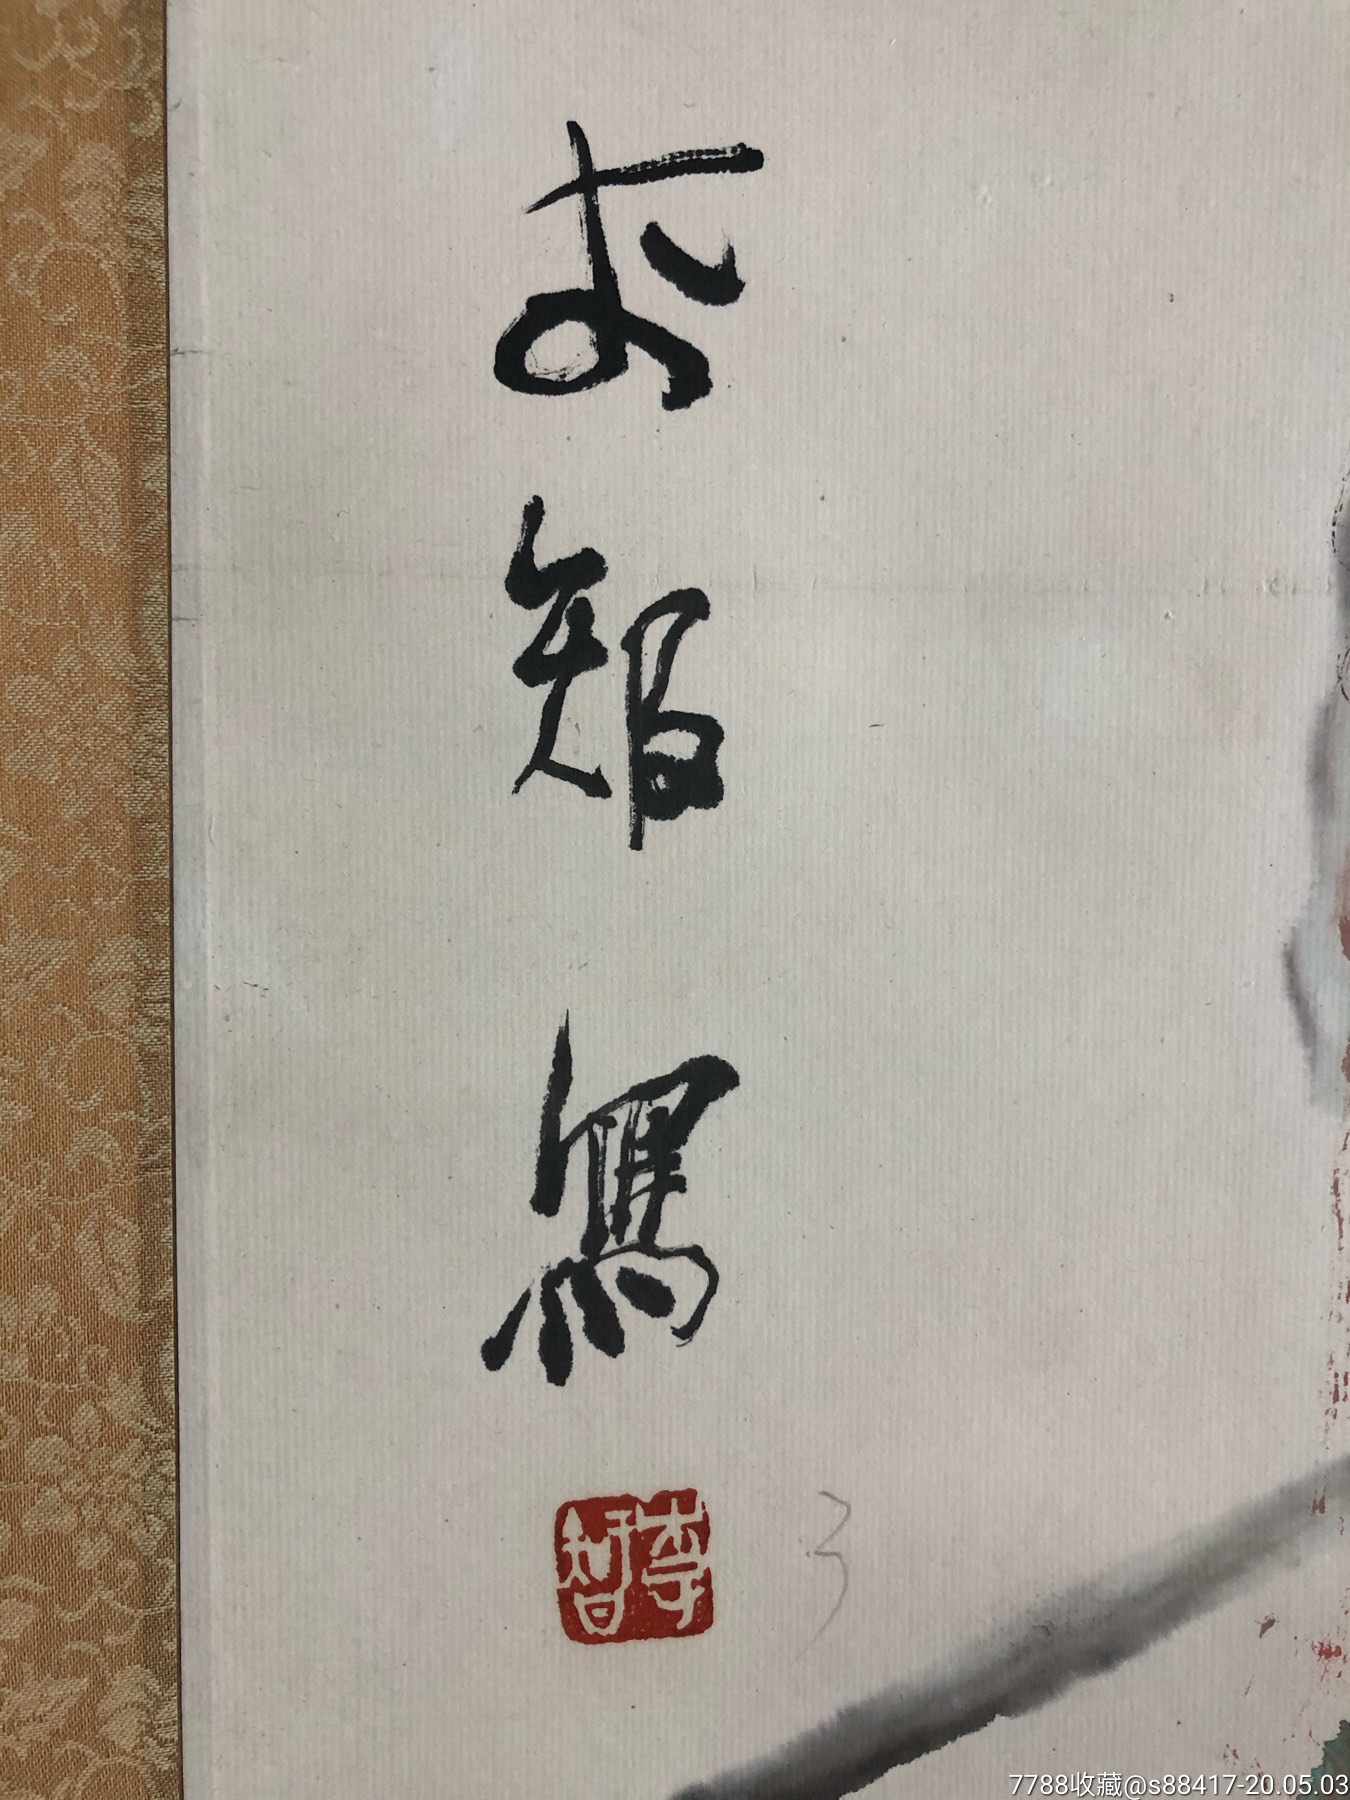 李智寫
李智
3
7788收藏@s88417-20.05.03